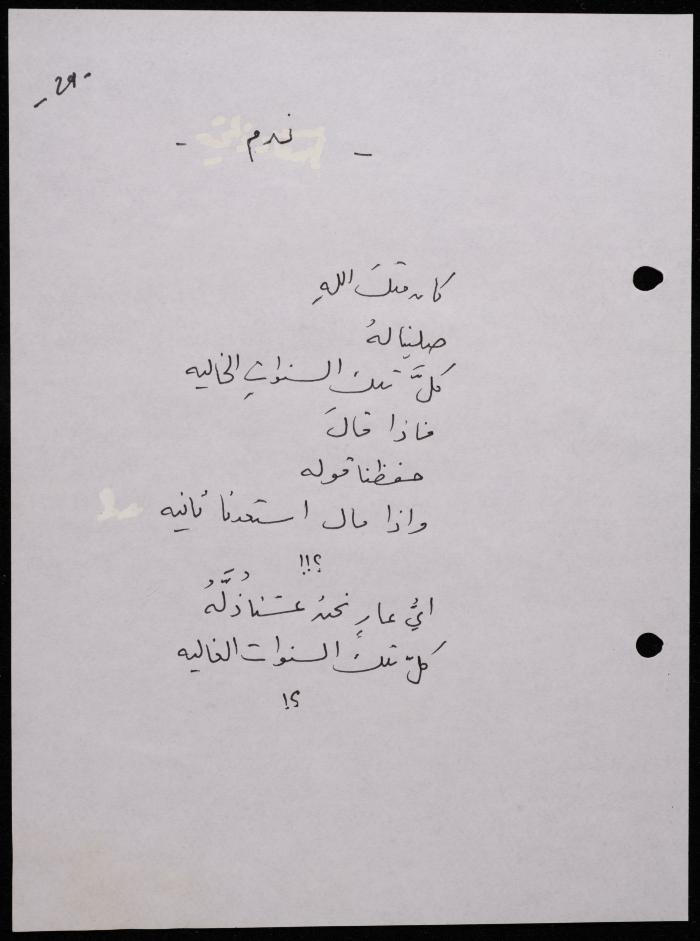 - ندم -
كان مثلَ اللهِ
صلينا لهُ
كلَّ تلك السنواتِ الخاليه
فاذا قالَ
حفظنا قوله
واذا مال استعدنا ثانيه
؟!!!
ايُّ عارٍ نحن عشنا ذُلَّهُ
كلّ تلكَ السنوات الغاليه
؟!